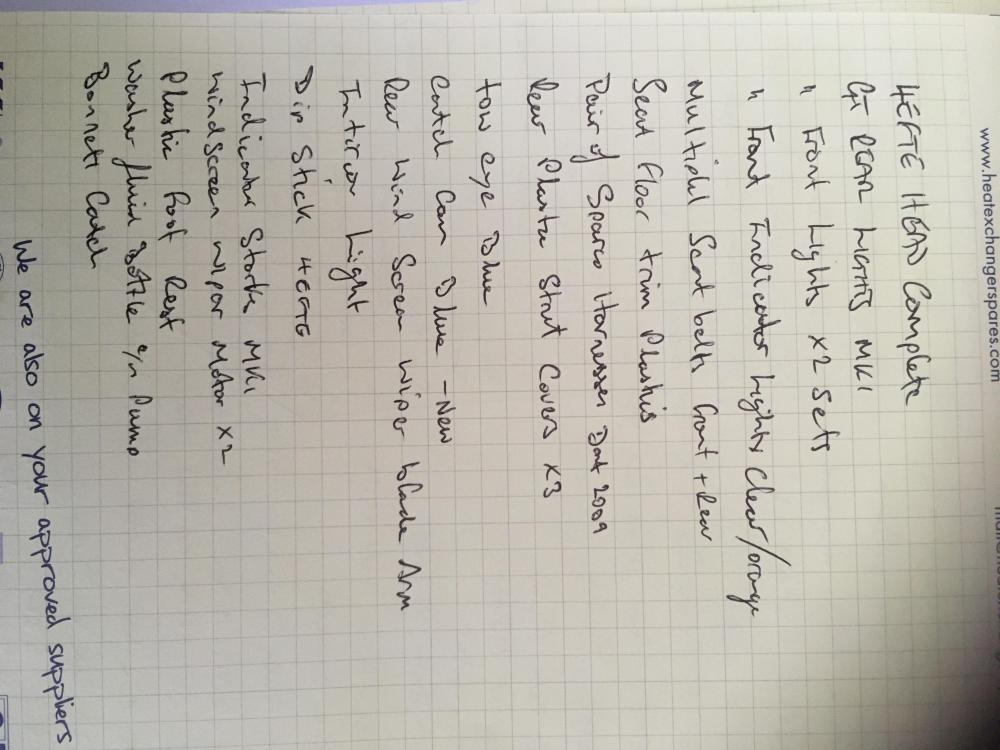 www.heatexchangerspares.com
4EFTE HEAD Complete
GT REAR LIGHTS MK1
" Front Lights x2 Sets
" Front Indicator Lights Clear/orange
Multipul Seat belts front + Rear
Seat floor trim Plastics
Pair of Sparco Harnesses Date 2009
Rear Plastic Strut Covers x3
tow eye Blue
Catch Can Blue - New
Rear Wind Screen wiper blade Arm
Interior Light
Dip Stick 4EFTE
Indicator Stalks MK1
Windscreen wiper Motor x2
Plastic Roof Rest
Washer fluid Bottle c/n Pump
Bonnett Catch
We are also on your approved suppliers